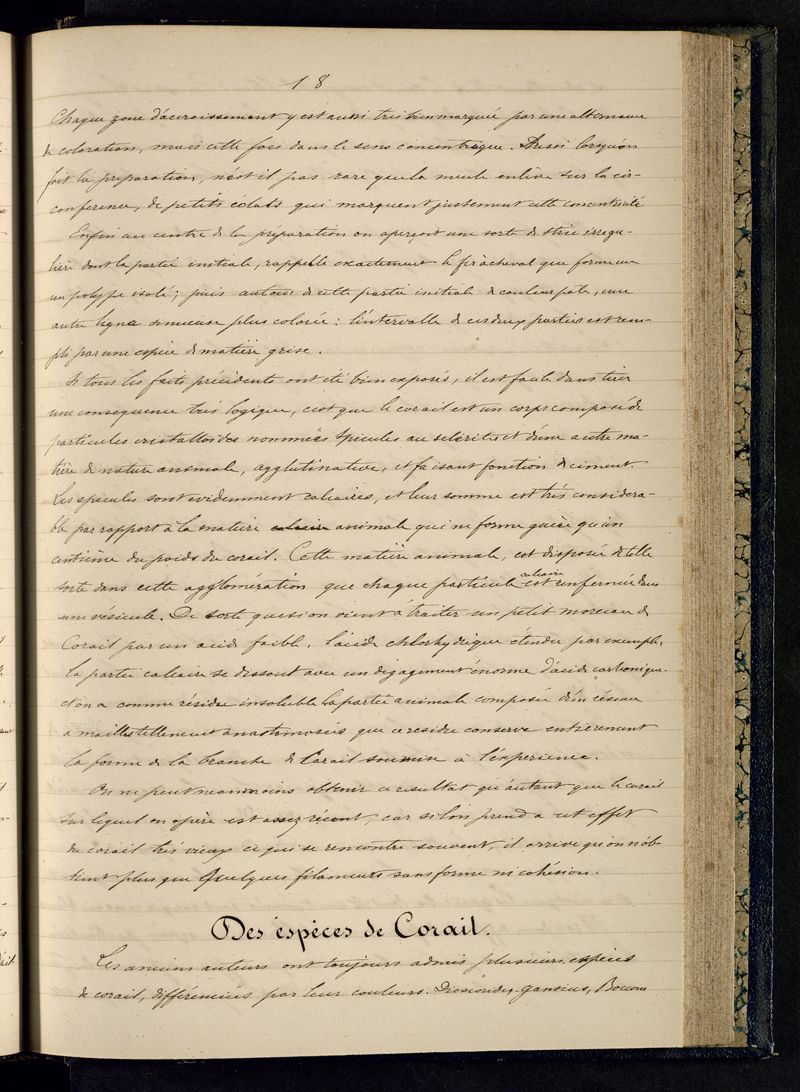 18
Chaque zone d'accroissement y est aussi très bien marquée par une alternance
de coloration, mais cette fois dans le sens concentrique. Aussi lorsqu'on
fait la preparation, n'est il pas rare que la meule enlève sur la cir-
conference, de petits éclats qui marquent justement cette concentricité.
Enfin au centre de la préparation on aperçoit une sorte de strie irregu-
lière dont la partie initiale, rappelle exactement le fer à cheval que forme
un polype isolé; puis autour de cette partie initiale de couleur pale, une
autre ligne sinueuse plus colorée: l'intervalle de ces deux parties est rem-
pli par une espèce de matière grise.
Si tous les faits précédents ont été bien exposés, il est facile d'en tirer
une consequence très logique, c'est que le corail est un corps composé de
particules cristalloides nommées spicules ou sclerites et d'une autre ma-
tière de nature animale, agglutinative, et faisant fonction de ciment.
Les spicules sont evidemment calcaires, et leur somme est très considera-
ble par rapport à la matière calcaire animale qui ne forme guère qu'un
centième du poids du corail. Cette matière animale, est disposée de telle
sorte dans cette agglomération que chaque particule calcaire est renfermée dans
une vésicule. De sorte que si on vient à traiter un petit morceau de
Corail par un acide faible, l'acide chlorhydrique etendu par exemple,
la partie calcaire se dissout avec un dégagement énorme d'acide carbonique
et on a comme résidu insoluble la partie animale composée d'un réseau
a mailles tellement anastomosées que ce residu conserve entièrement
la forme de la branche de Corail soumise à l'expérience.
On ne peut neanmoins obtenir ce resultat qu'autant que le corail
sur lequel on opère est assez récent, car si l'on prend a cet effet
du corail très vieux ce qui se rencontre souvent, il arrive qu'on n'ob-
tient plus que Quelques filaments sans forme ni cohésion.
Des espèces de Corail.
Les anciens auteurs ont toujours admis plusieurs espèces
de corail, différenciées par leur couleurs. Dioscorides, Gansius, Boccone